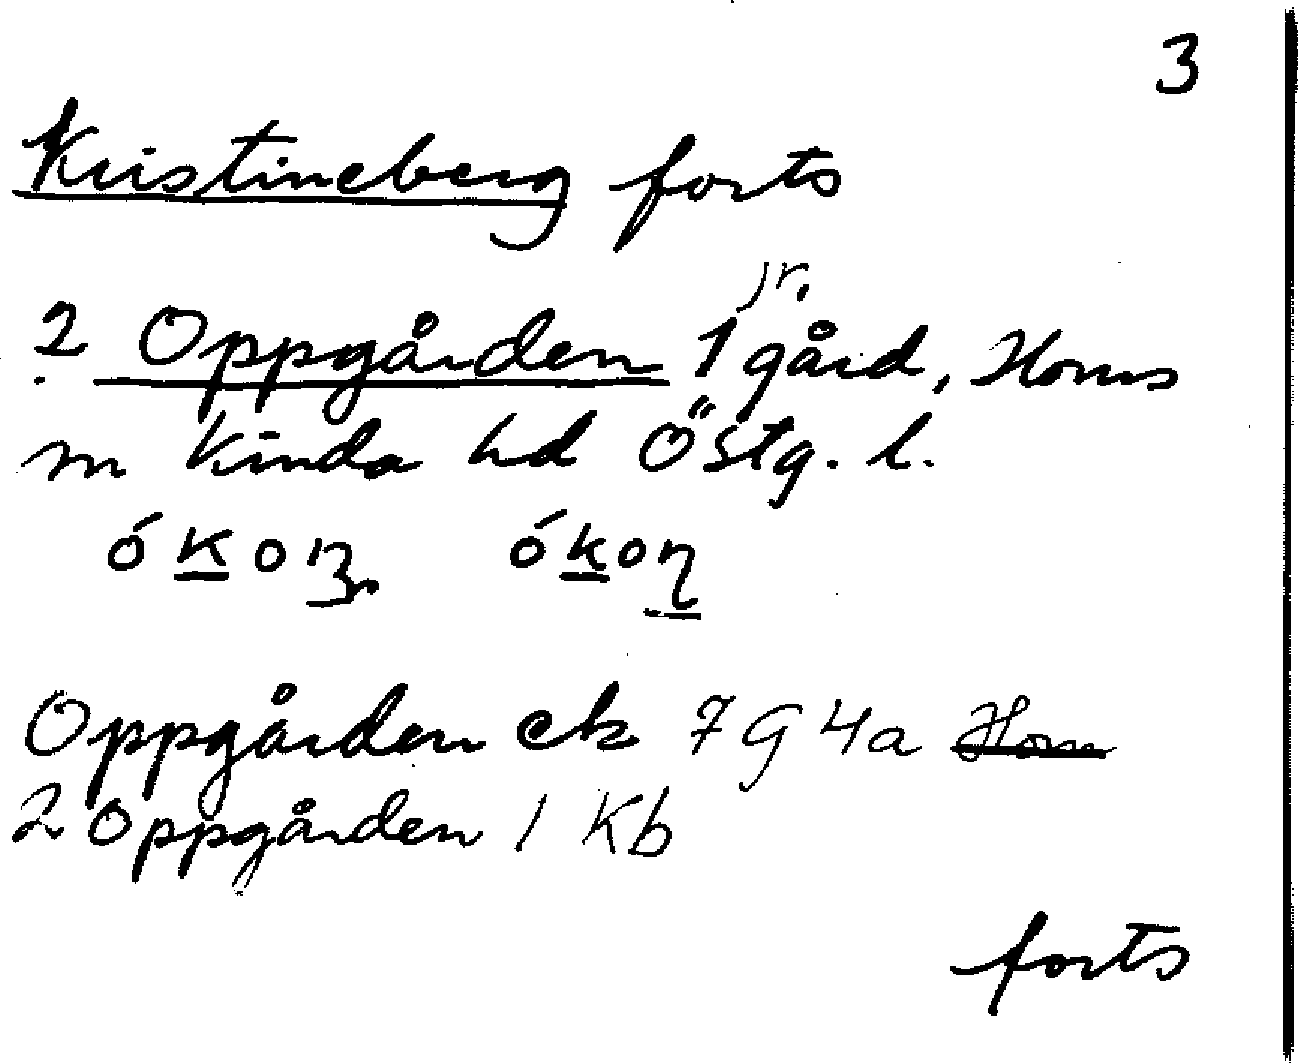 3
Kristineberg forts
jr.
2 Oppgården 1 gård, Horns
sn Kinda hd Östg. l.
Oppgården ek 7G4a Horn
2 Oppgården 1 Kb
forts